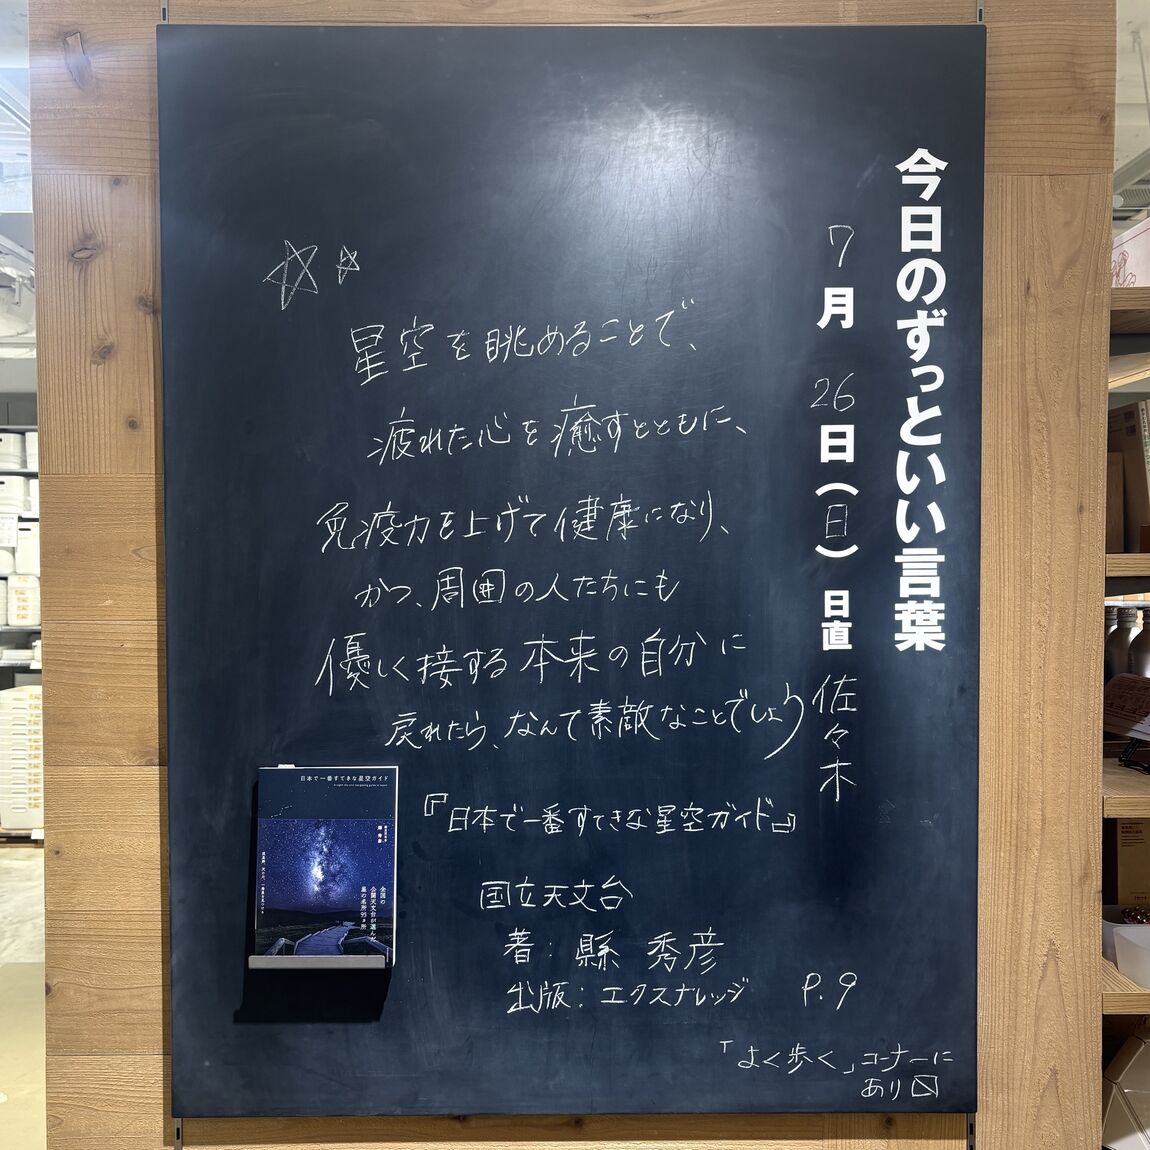 今日のずっといい言葉
7月26日(日) 日直 佐々木
星空を眺めることで、
疲れた心を癒すとともに、
免疫力を上げて健康になり、
かつ、周囲の人たちにも
優しく接する本来の自分に
戻れたら、なんて素敵なことでしょう
『日本で一番すてきな星空ガイド』
国立天文台
著:縣 秀彦
出版:エクスナレッジ P.9
「よく歩く」コーナーに
あり〼
日本で一番すてきな星空ガイド
縣 秀彦
全国の
公開天文台が選んだ
星の名所95ヵ所